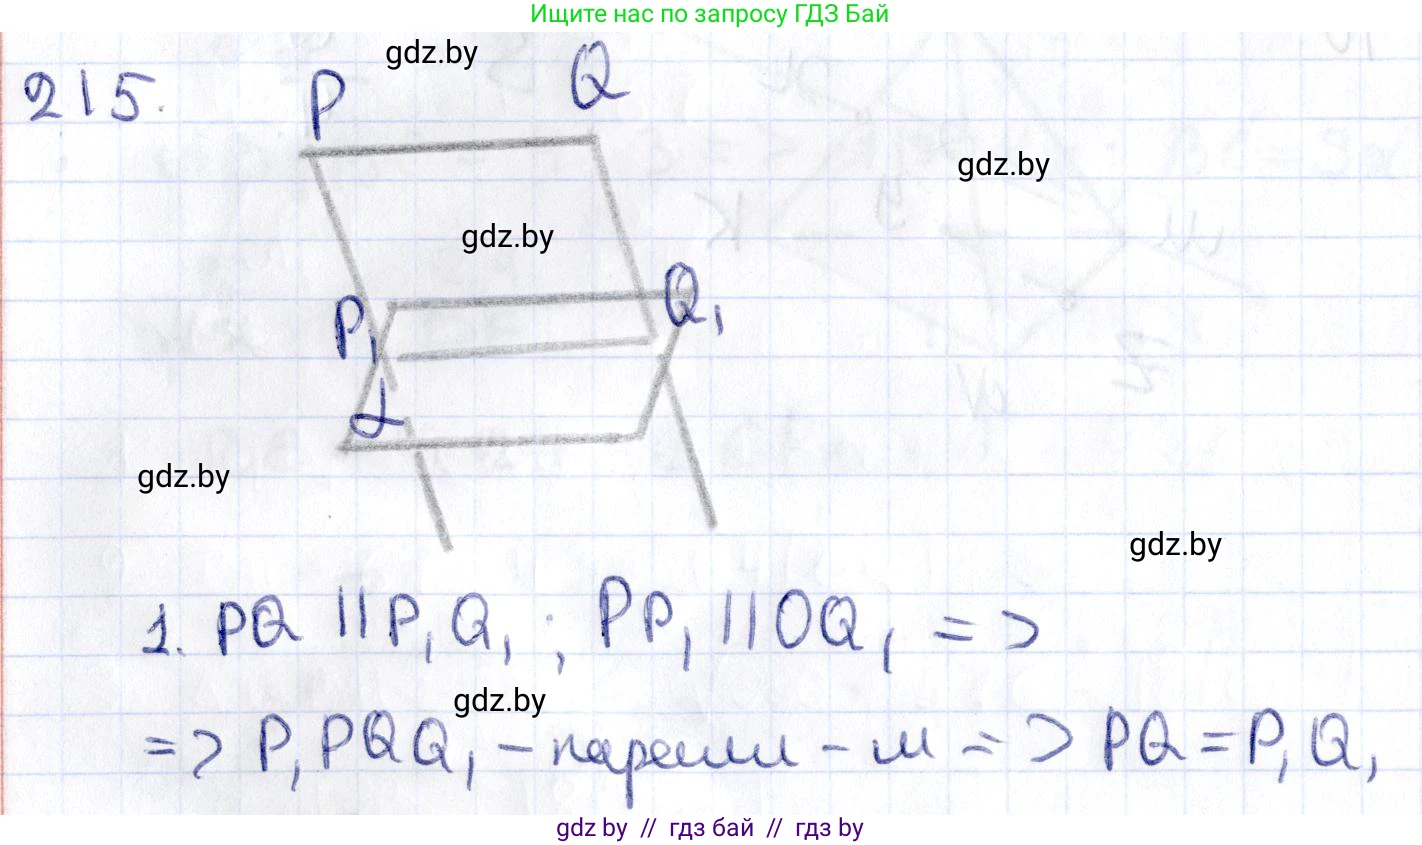 Ищите нас по запросу ГДЗ Бай
gdz.by
215.
P Q
gdz.by
gdz.by
P₁ Q₁
α
gdz.by
gdz.by
1. PQ || P₁Q₁ ; PP₁ || OQ₁ =>
gdz.by
=> P₁PQQ₁ – паралл-м => PQ = P₁Q₁
gdz.by // гдз бай // гдз by